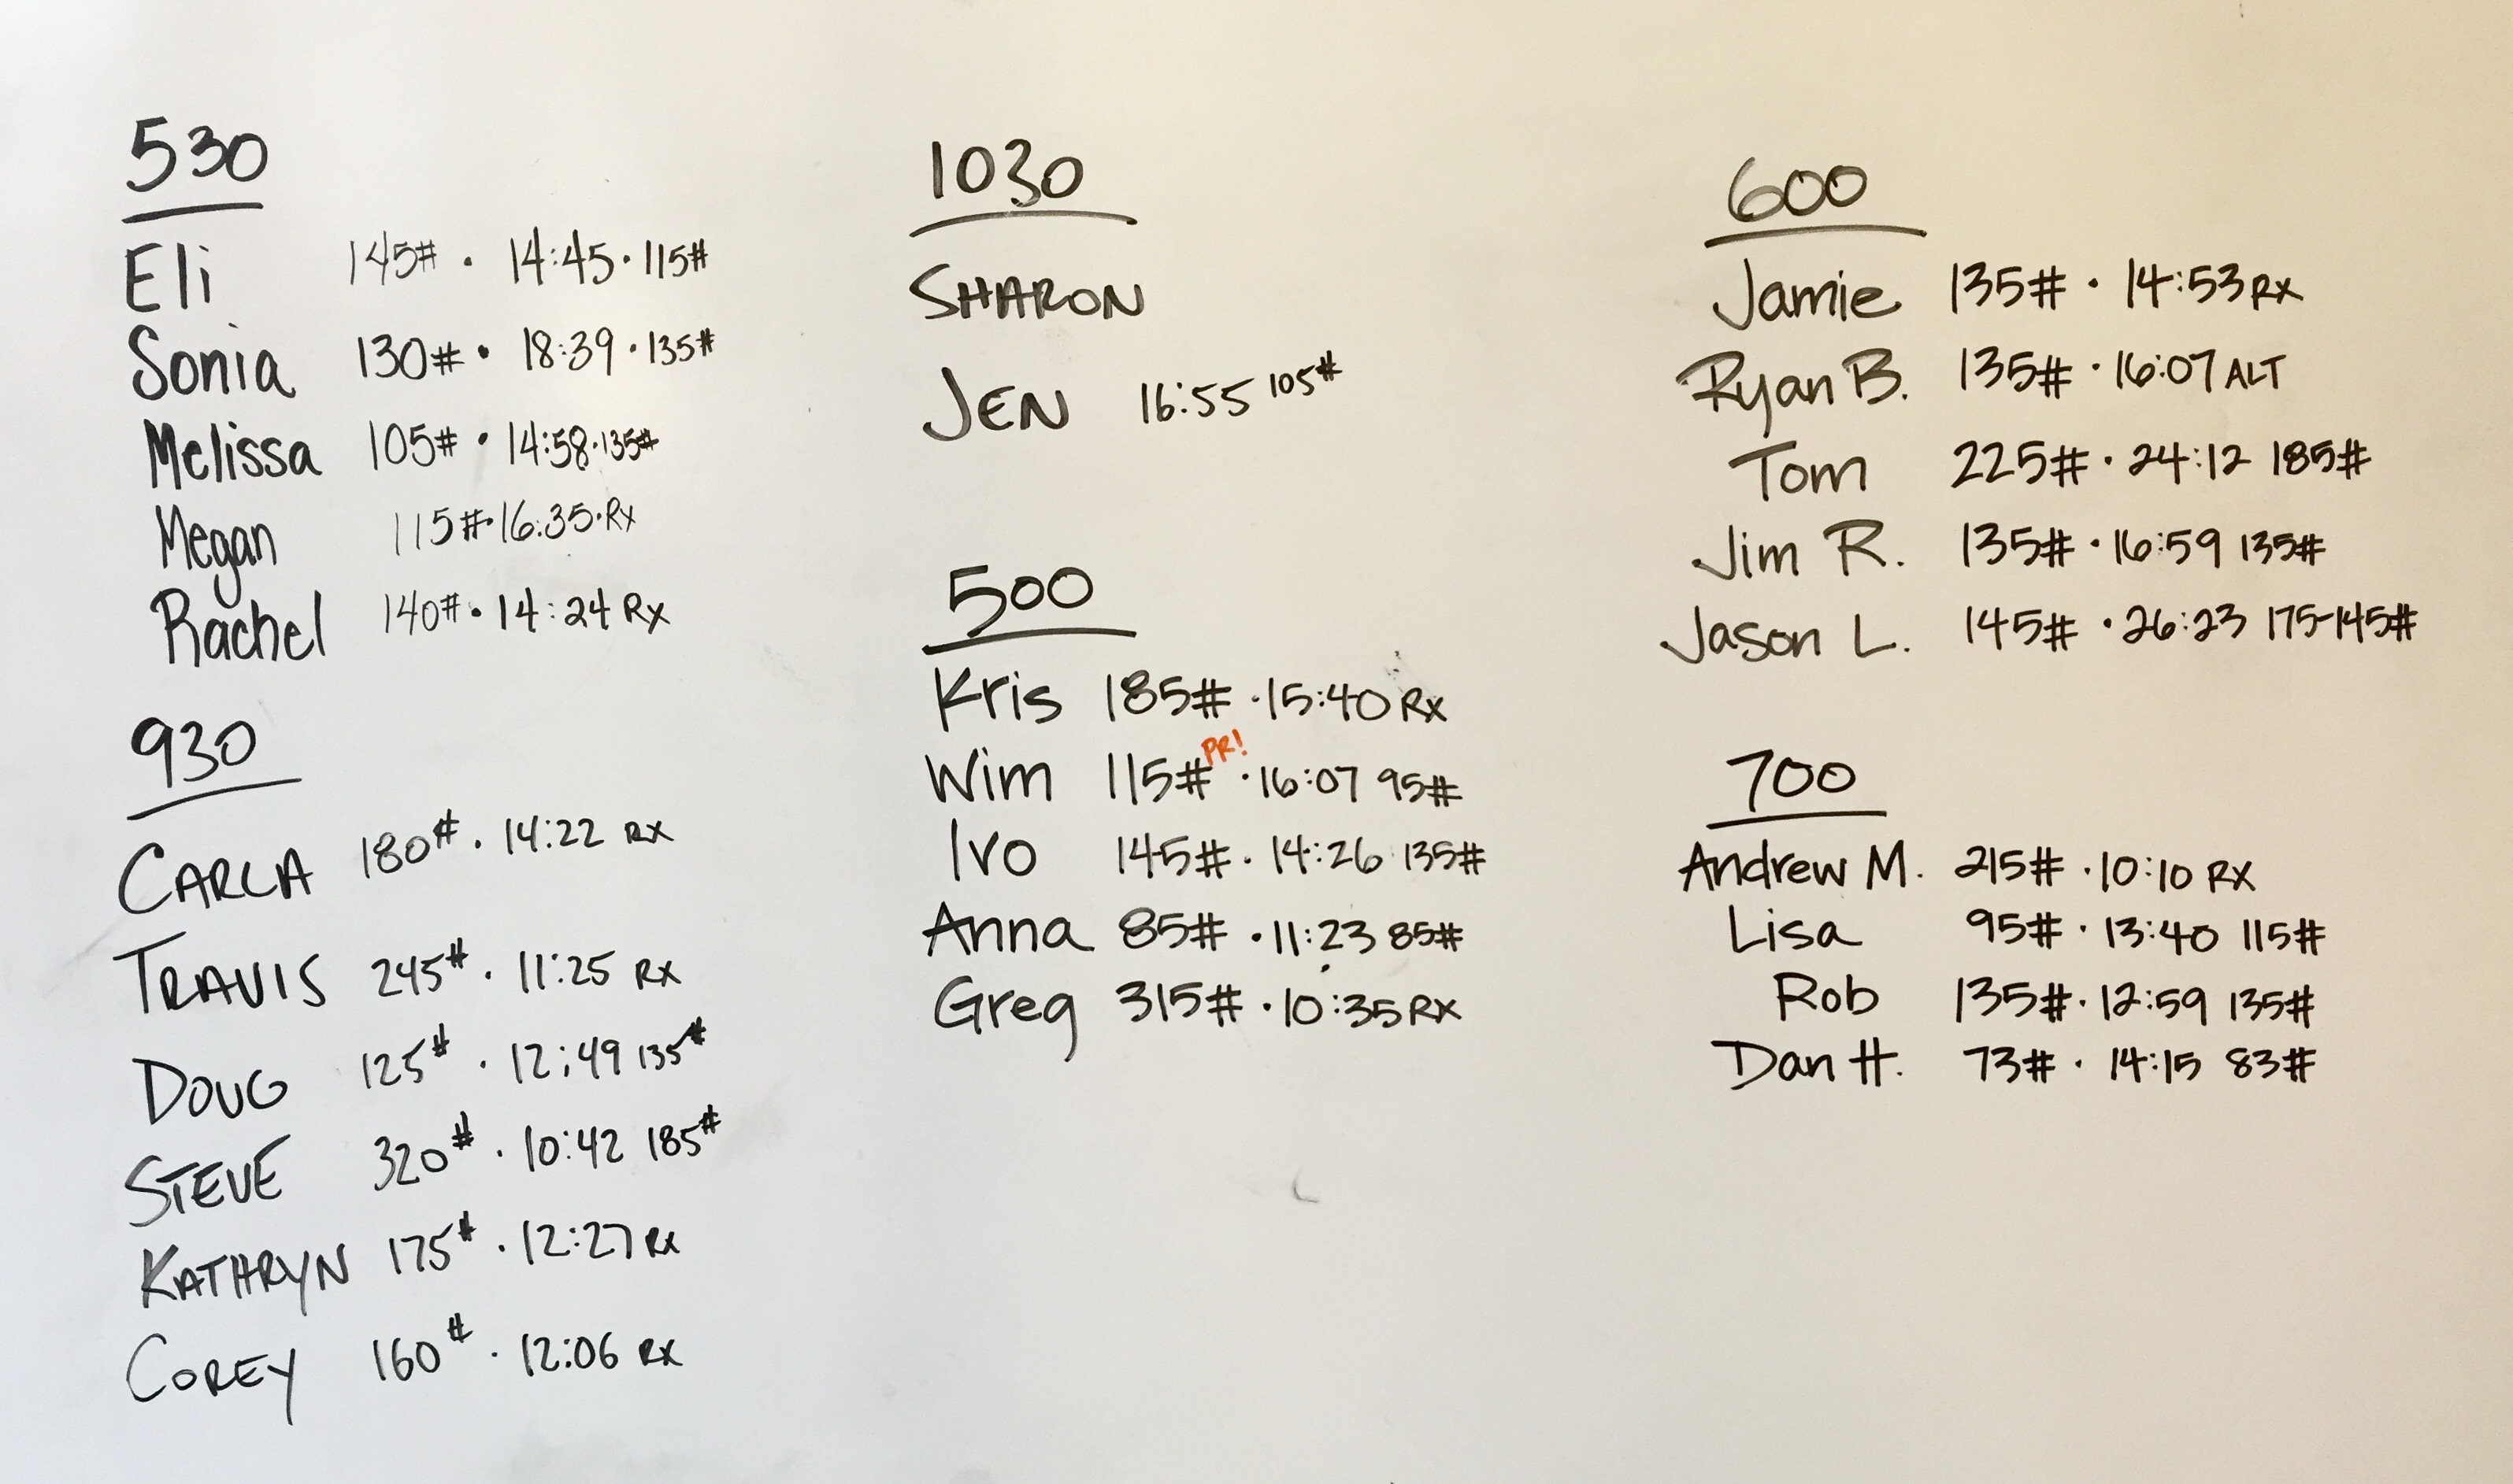 530
Eli 145# · 14:45 · 115#
Sonia 130# · 18:39 · 135#
Melissa 105# · 14:58 · 135#
Megan 115# · 16:35 · Rx
Rachel 140# · 14:24 Rx
930
CARLA 180# · 14:22 RX
TRAVIS 245# · 11:25 RX
DOUG 125# · 12:49 135#
STEVE 320# · 10:42 185#
KATHRYN 175# · 12:27 Rx
COREY 160# · 12:06 RX
1030
SHARON
JEN 16:55 105#
500
Kris 185# · 15:40 RX
Wim 115# PR! · 16:07 95#
Ivo 145# · 14:26 135#
Anna 85# · 11:23 85#
Greg 315# · 10:35 RX
600
Jamie 135# · 14:53 RX
Ryan B. 135# · 16:07 ALT
Tom 225# · 24:12 185#
Jim R. 135# · 16:59 135#
Jason L. 145# · 26:23 175-145#
700
Andrew M. 215# · 10:10 RX
Lisa 95# · 13:40 115#
Rob 135# · 12:59 135#
Dan H. 73# · 14:15 83#